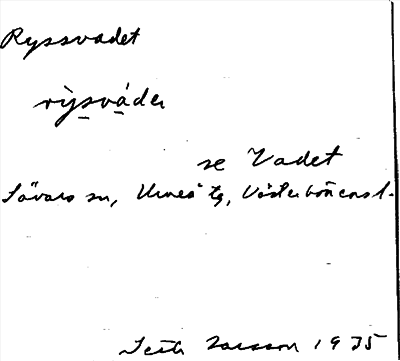 Ryssvadet
rỳsvádeṇ
se Vadet
Sävars sn, Umeå tg, Västerbottens l.
Larsson 1935